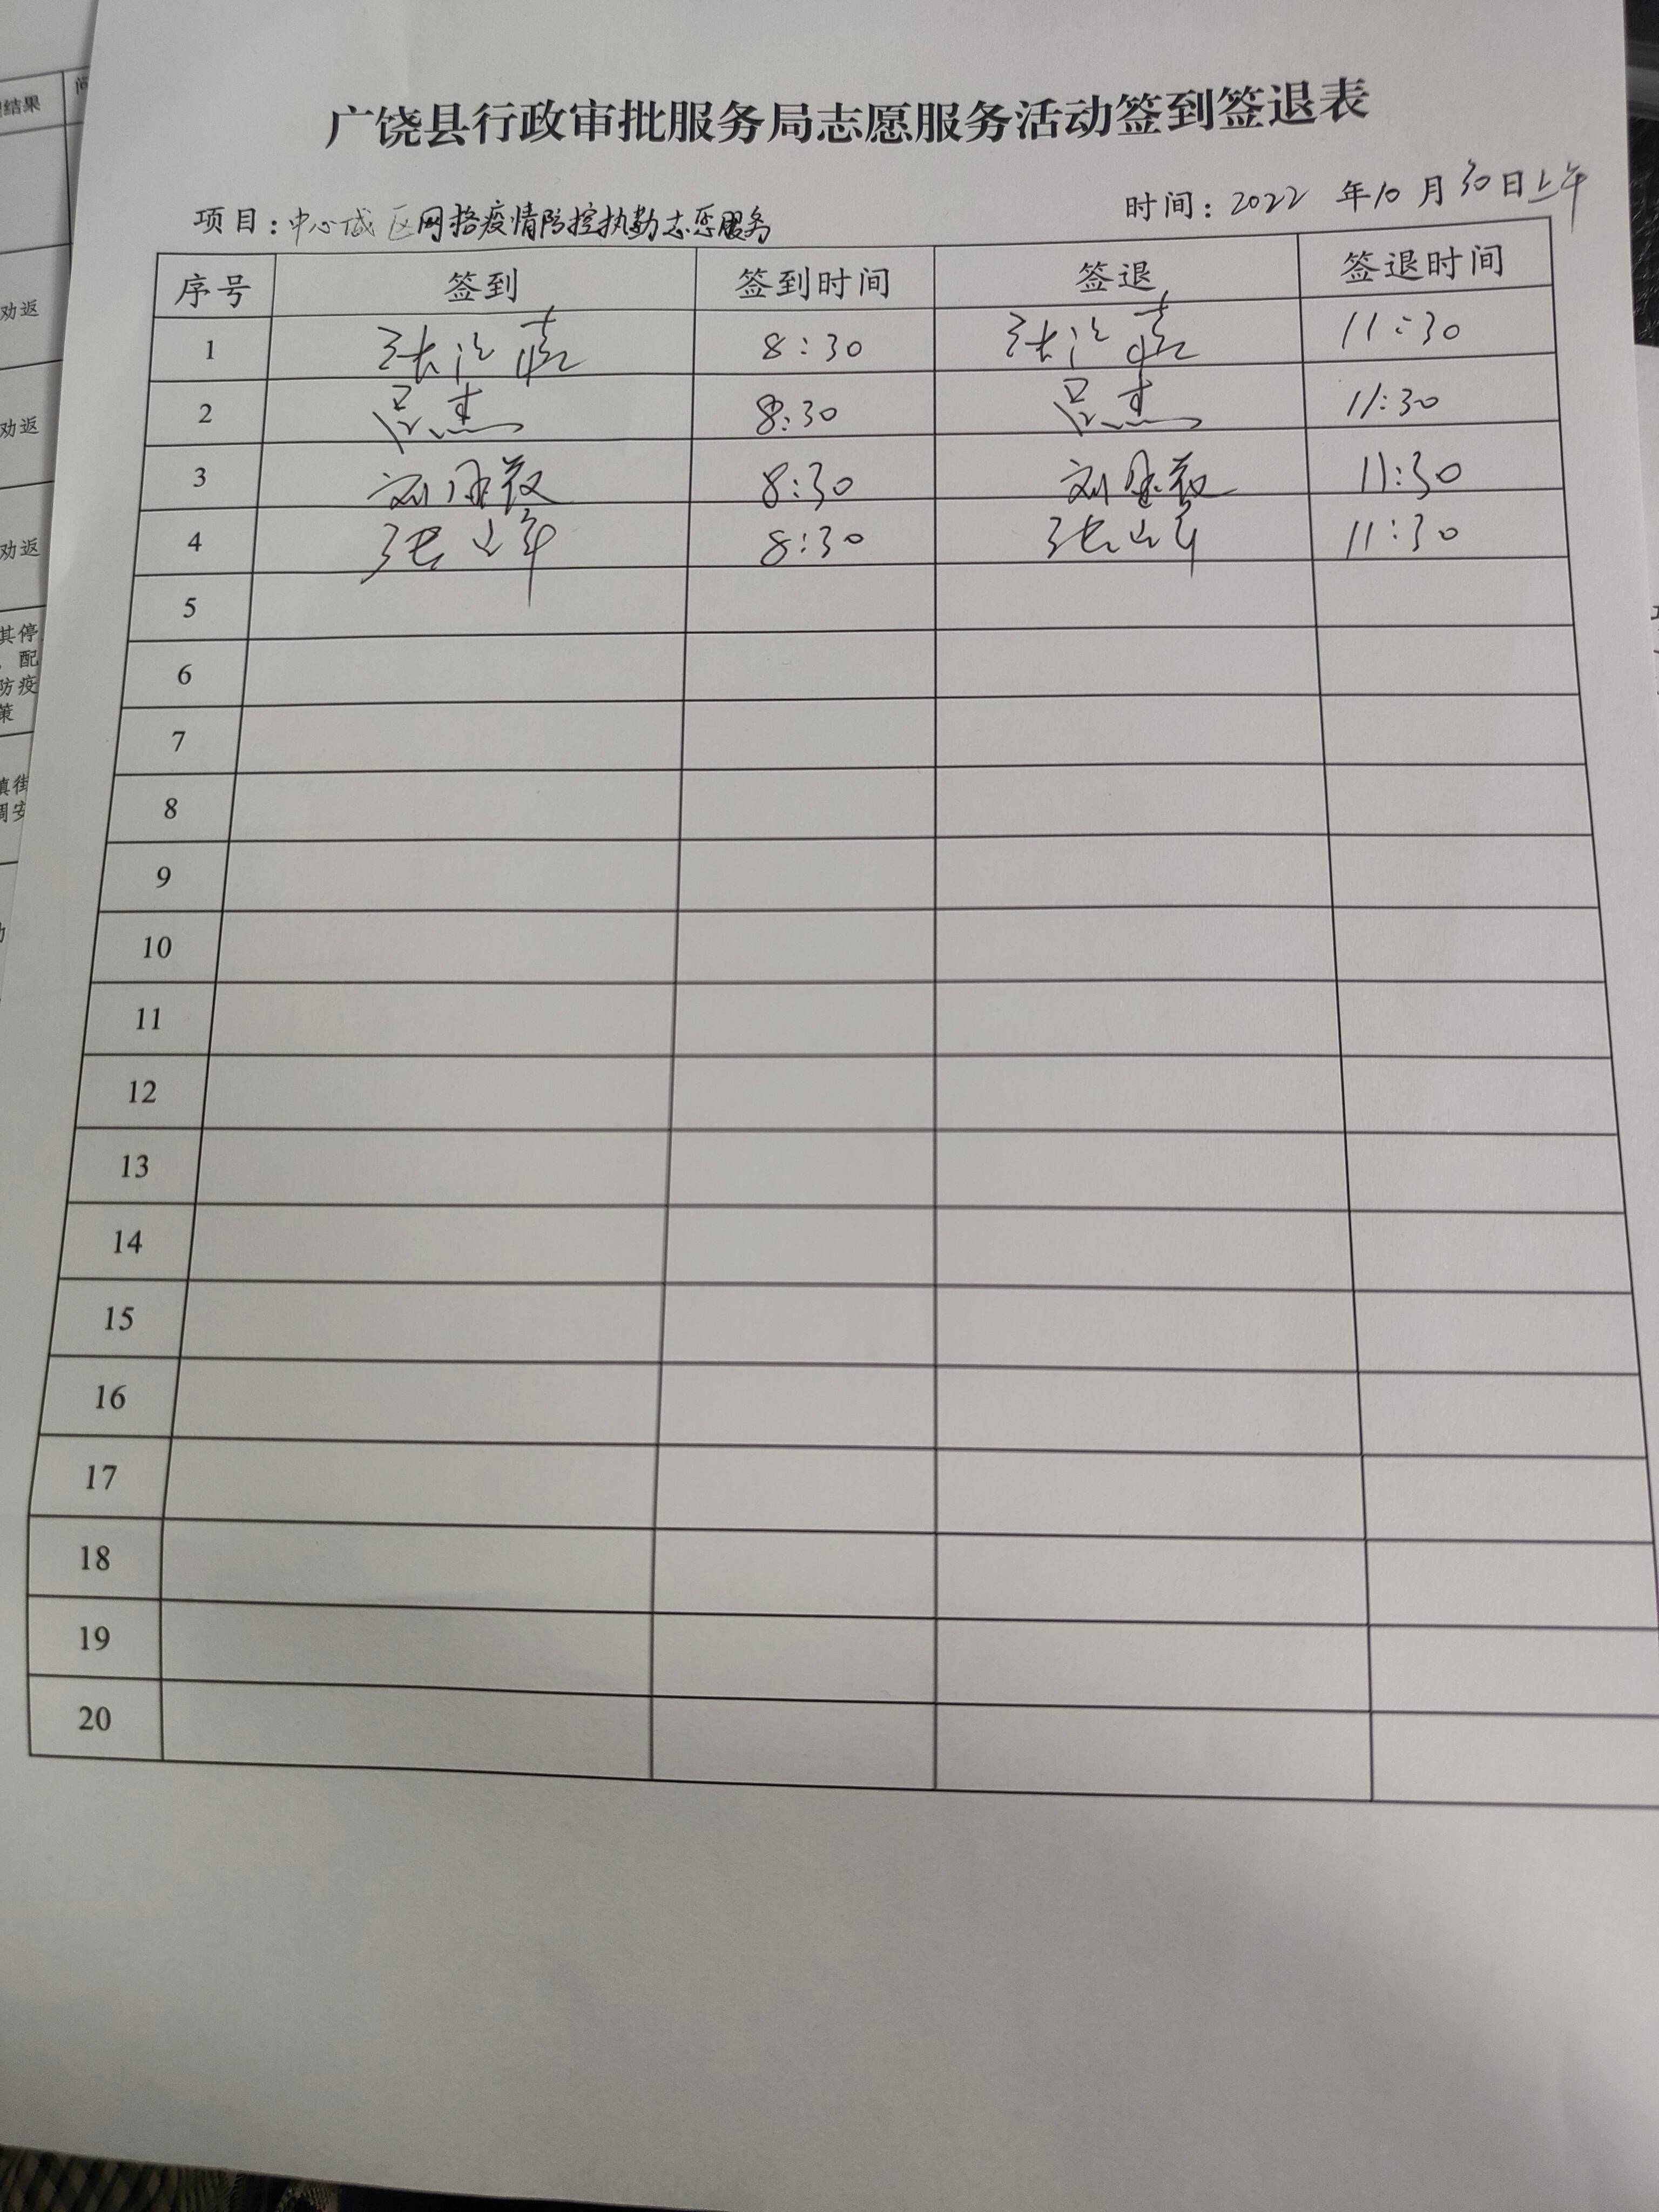 广饶县行政审批服务局志愿服务活动签到签退表
项目：中心城区网格疫情防控执勤志愿服务 时间：2022 年10 月30日上午
序号 签到 签到时间 签退 签退时间
1 8:30 11:30
2 吕杰 8:30 吕杰 11:30
3 8:30 11:30
4 8:30 11:30
5
6
7
8
9
10
11
12
13
14
15
16
17
18
19
20
结果
劝返
劝返
劝返
其停
配
防疫
策